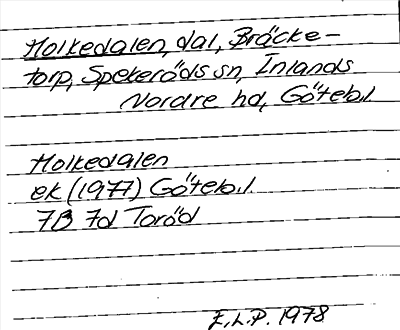 Holkedalen, dal, Bräcke-
torp, Spekeröds sn, Inlands
Nordre hd, Götebl.
Holkedalen
ek (1977) Götebl.
7B 7d Toröd
E.L.P. 1978